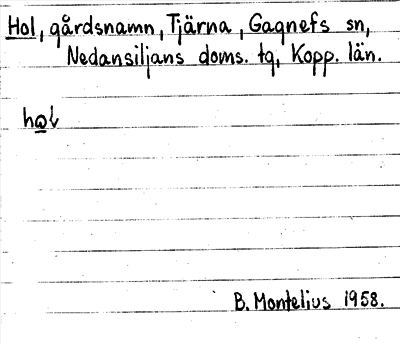 Hol, gårdsnamn, Tjärna, Gagnefs sn,
Nedansiljans doms. tg, Kopp. län.
ho̲l
B. Montelius 1958.